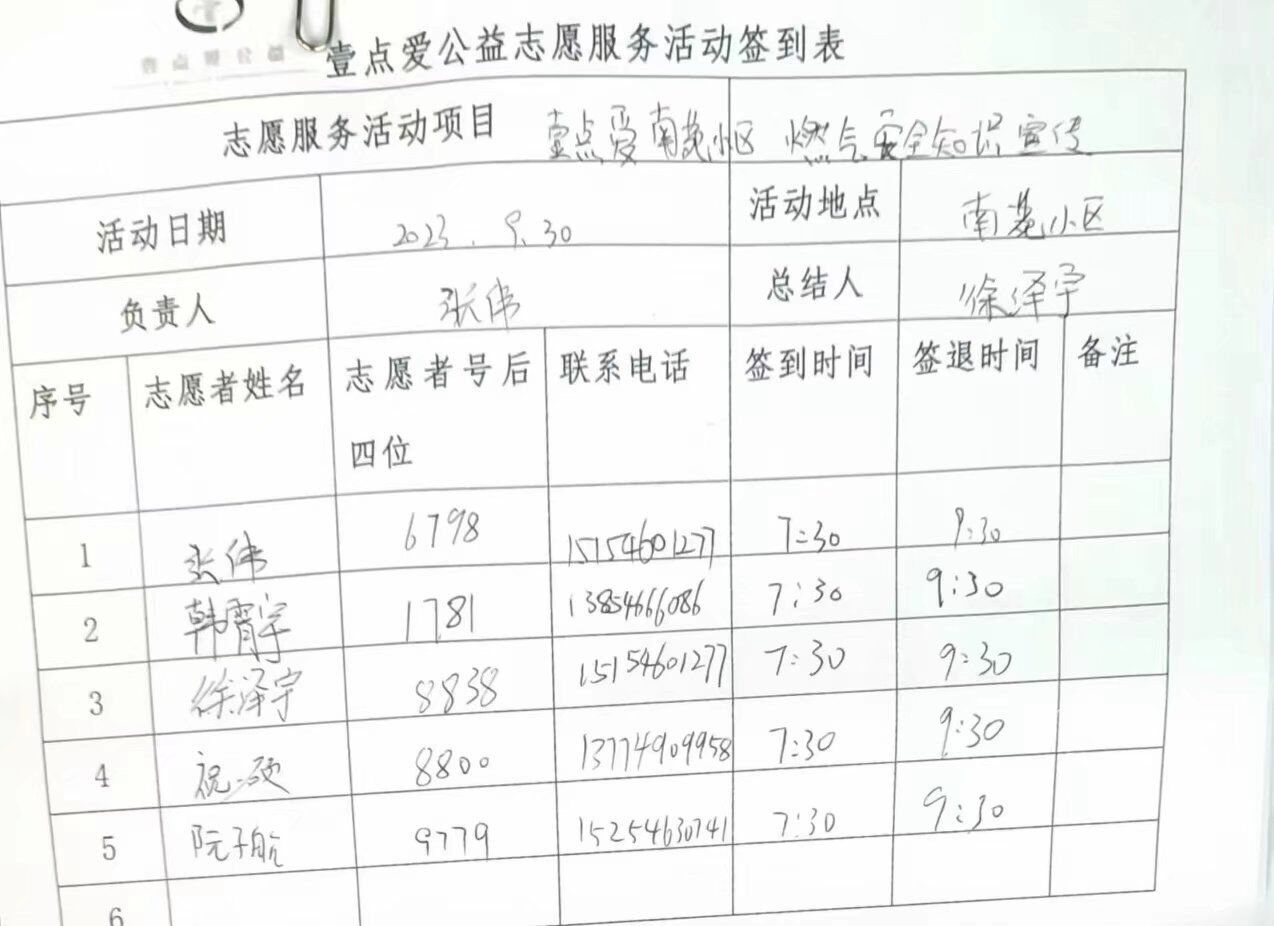 壹点爱公益志愿服务活动签到表
志愿服务活动项目 壹点爱南苑小区 燃气安全知识宣传
活动日期 2023.9.30 活动地点 南苑小区
负责人 张伟 总结人 徐泽宇
序号 志愿者姓名 志愿者号后四位 联系电话 签到时间 签退时间 备注
1 张伟 6798 15154601277 7:30 9:30
2 韩霄宇 1781 13854666086 7:30 9:30
3 徐泽宇 8838 15154601277 7:30 9:30
4 祝硕 8800 13774909958 7:30 9:30
5 阮子航 9779 15254630741 7:30 9:30
6